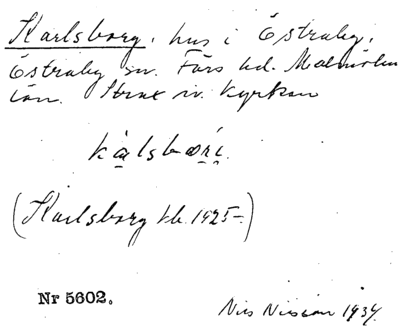 Karlsborg, hus i Östraby,
Östraby sn. Färs hd. Malmöhus
län. Strax v. kyrkan
(Karlsborg kb. 1925–)
Nr 5602.
Nils Nilsson 1934.